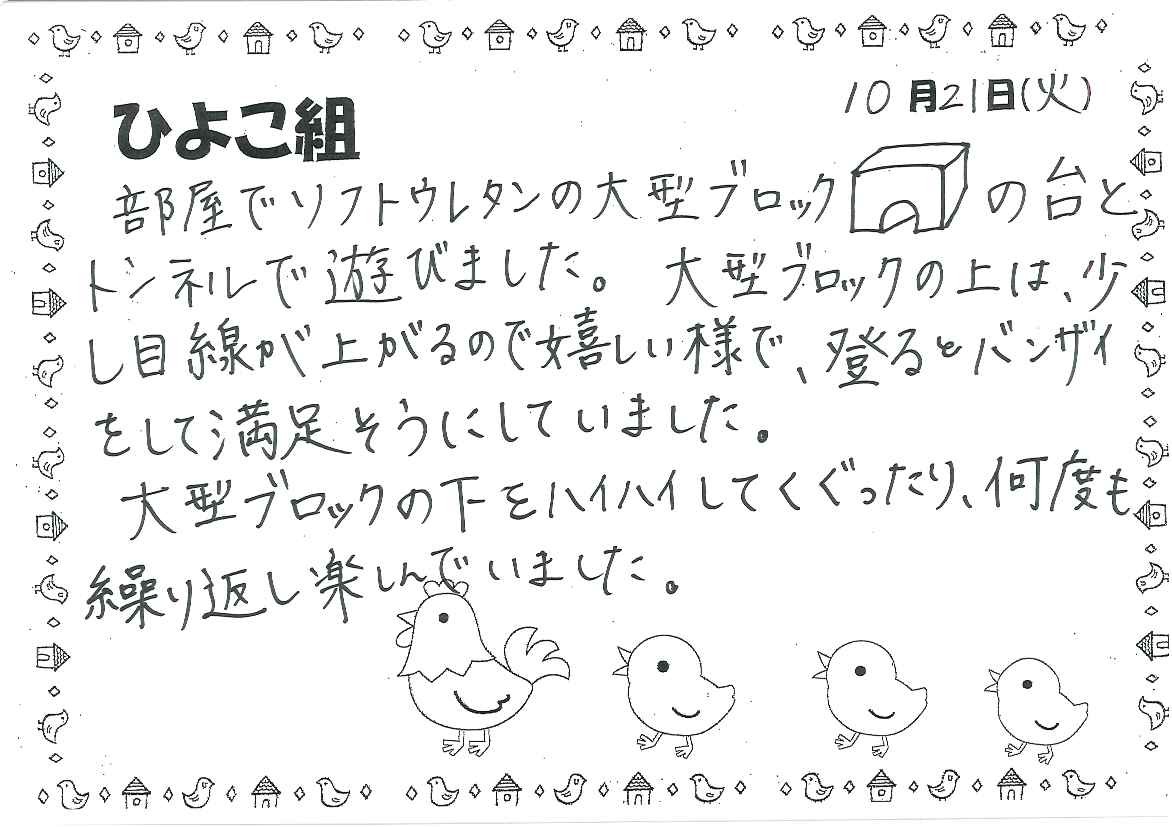 10月21日(火)
ひよこ組
部屋でソフトウレタンの大型ブロックの台と
トンネルで遊びました。大型ブロックの上は、少
し目線が上がるので嬉しい様で、登るとバンザイ
をして満足そうにしていました。
大型ブロックの下をハイハイしてくぐったり、何度も
繰り返し楽しんでいました。